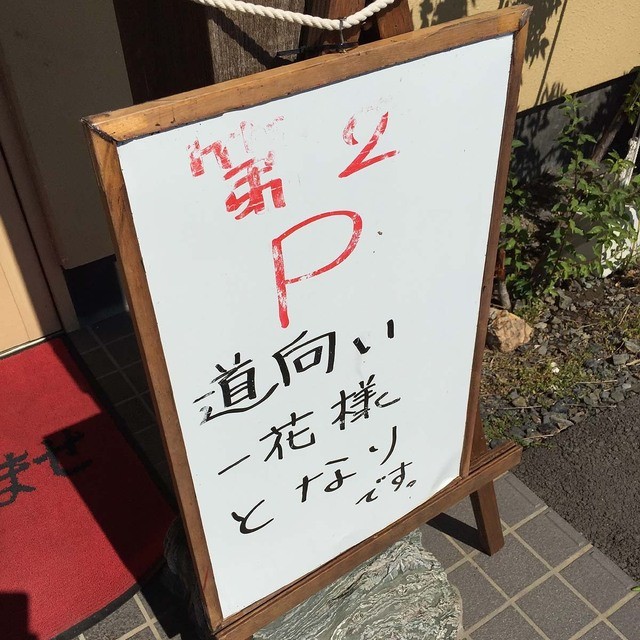 第2
P
道向い
一花様
となり
です。
ませ